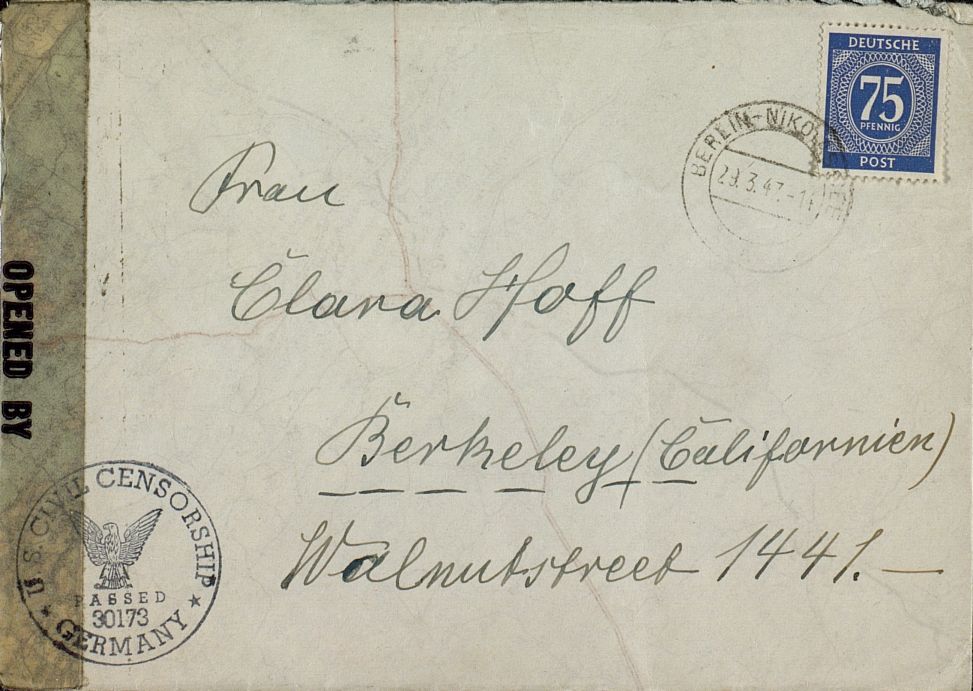 DEUTSCHE
75
PFENNIG
POST
29.3.47.-11
Frau
Clara Hoff
Berkeley (Californien)
Walnutstreet 1441.—
OPENED BY
U.S. CIVIL CENSORSHIP
PASSED
30173
GERMANY